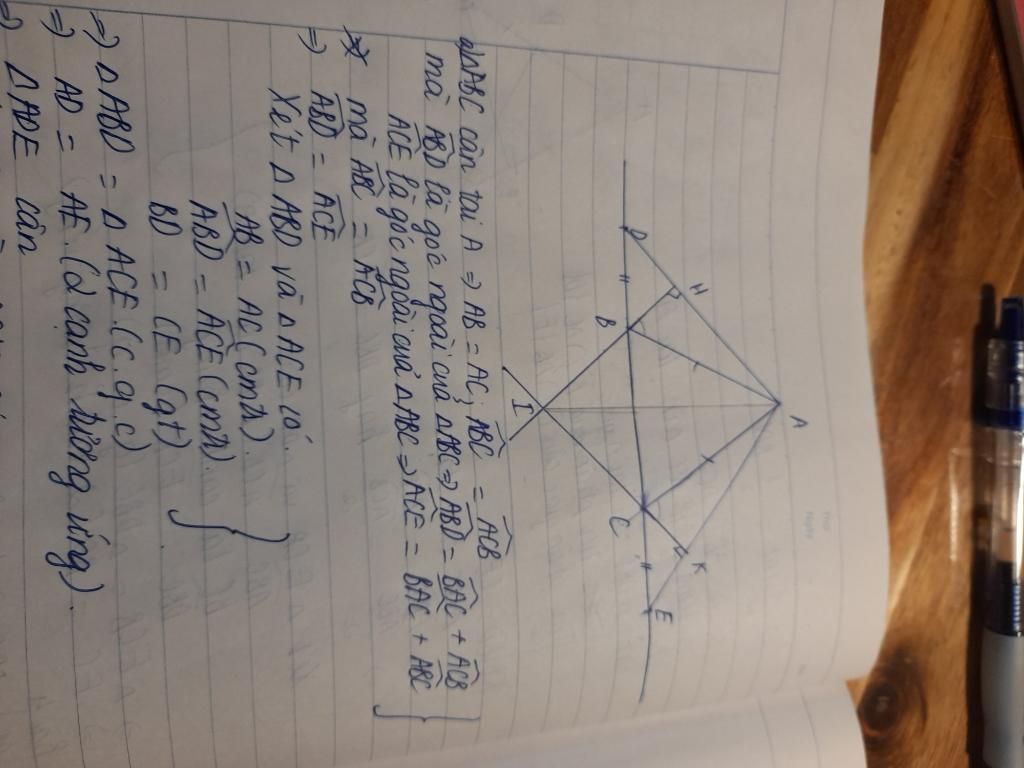 A
H
K
D
B
C
E
I
a) ΔABC cân tại A ⇒ AB = AC; \widehat{ABC} = \widehat{ACB}
mà \widehat{ABD} là góc ngoài của ΔABC ⇒ \widehat{ABD} = \widehat{BAC} + \widehat{ACB}
\widehat{ACE} là góc ngoài của ΔABC ⇒ \widehat{ACE} = \widehat{BAC} + \widehat{ABC} }
mà \widehat{ABC} = \widehat{ACB}
⇒ \widehat{ABD} = \widehat{ACE}
Xét Δ ABD và Δ ACE có:
AB = AC (cmtr)
\widehat{ABD} = \widehat{ACE} (cmtr) }
BD = CE (gt)
⇒ Δ ABD = Δ ACE (c.g.c)
⇒ AD = AE. (2 cạnh tương ứng).
⇒ Δ ADE cân